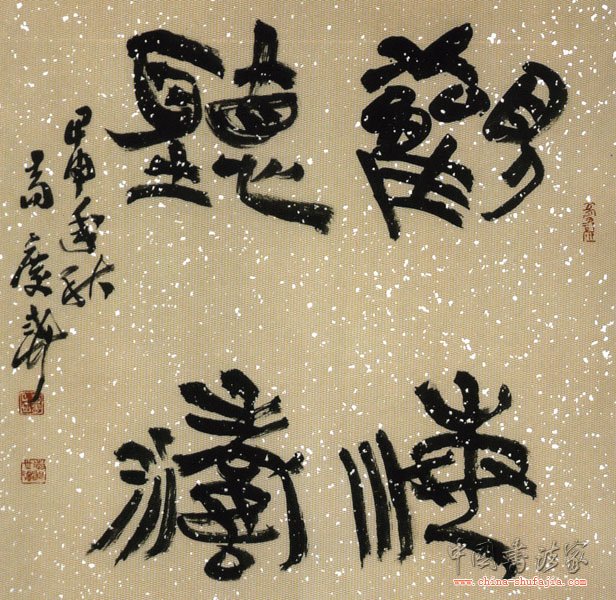 觀海
聽濤
甲申年秋
高慶春
中国書法家
www.china-shufajia.com